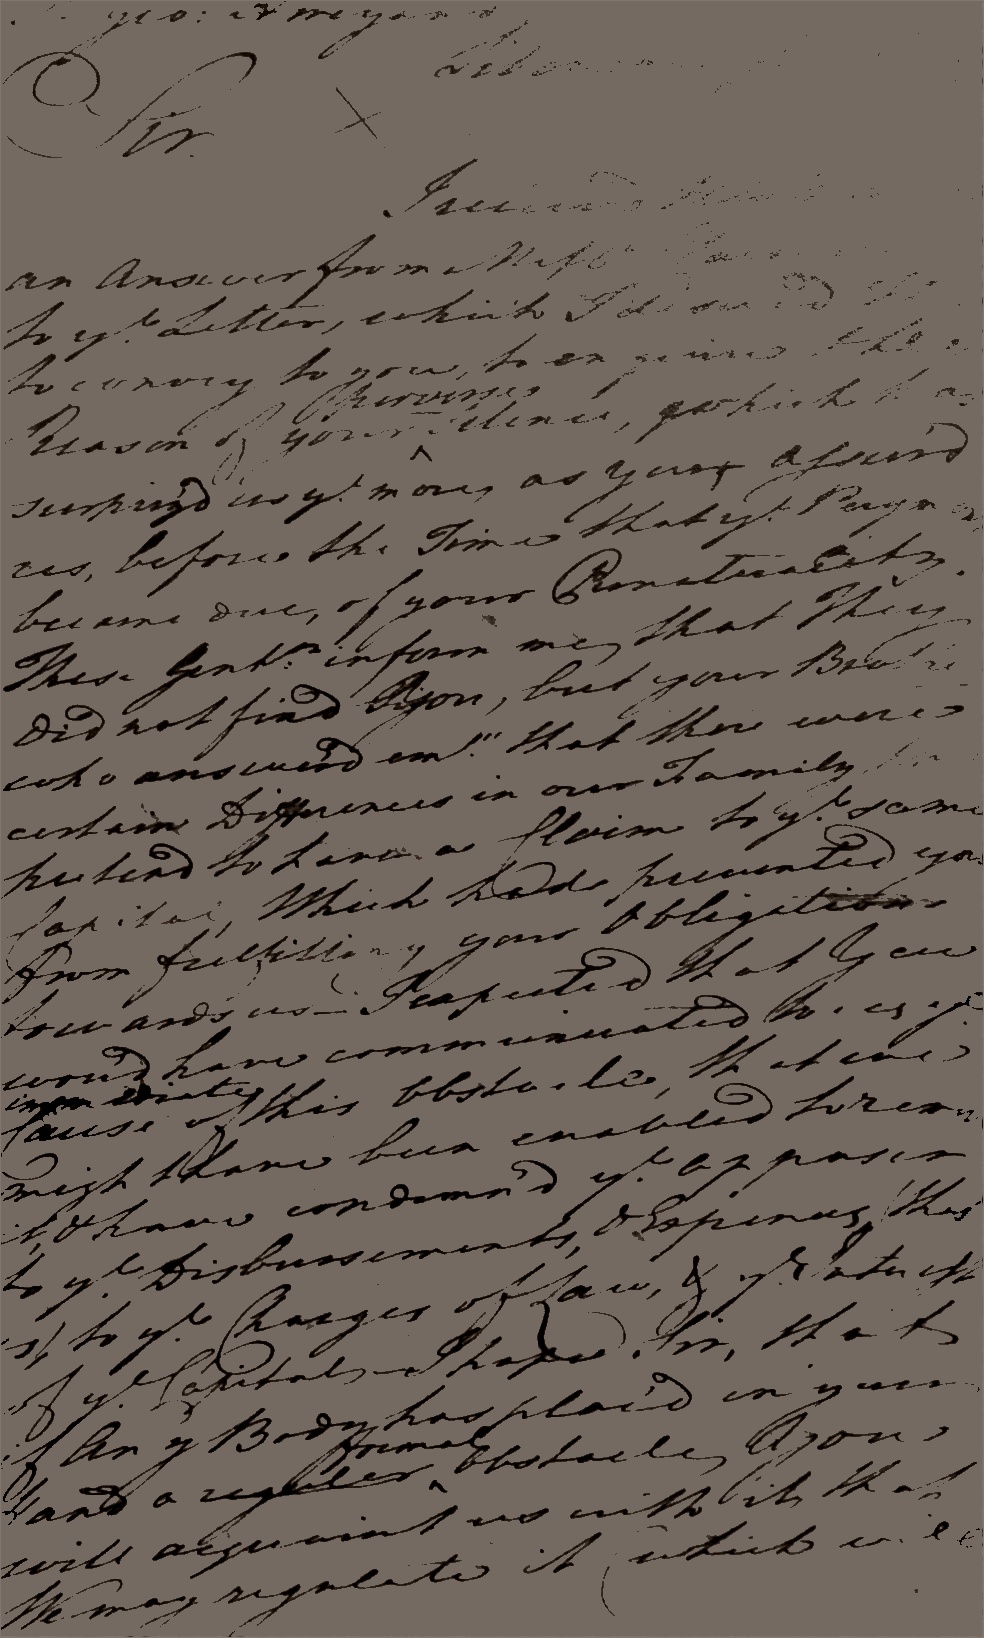 Sir.
I received
an Answer from Mess.
to y.e Letter, which I desired
to convey to you, to enquire the
Reason of your silence, which has
surpriz'd us y.e more, as you assur'd
us, before the Time that y.e
became due, of your Punctuality.
These Gent.n inform me, that They
Did not find you, but your Brothe
who answer'd em "that there were
certain Differences in our Family
pretend to have a Claim to y.e same
Capital, Which had prevented you
from fulfilling your Obligations
towards us — I expected that You
would have communicated to us y.e
immediate
Cause of this obstacle, that we
might have been enabled to remo
it, & have condemn'd y.e opposer
to y.e Disbursements, & Expences, (that
is,) to y.e Charges of Law, & y.e Interest
of y.e Capital — I hope Sir, that
if Any Body has plac'd in your
formal
Hand a regular obstacle, you
will acquaint us with it, that
We may regulate it (which will